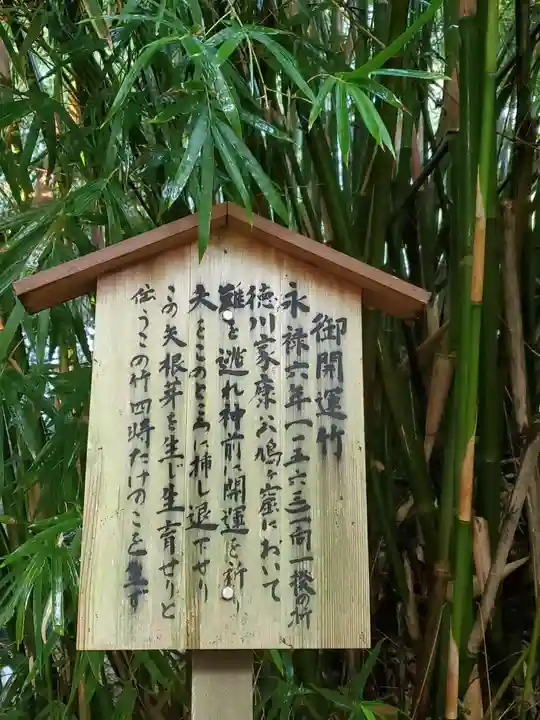 御開運竹
永禄六年(一五六三)向一揆の折
徳川家康公鳩ヶ窟において
難を逃れ神前に開運を祈り
矢をこのところに挿し退下せり
この矢根芽を生じ生育せりと
伝うこの竹四時たけのこを生ず